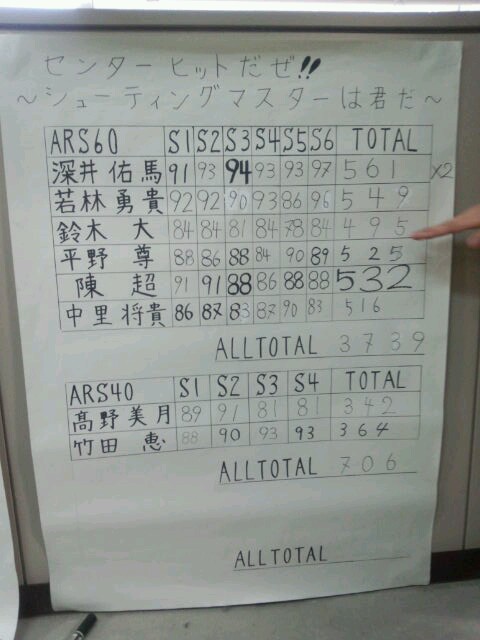 センターヒットだぜ!!
～シューティングマスターは君だ～
ARS60 S1 S2 S3 S4 S5 S6 TOTAL
深井 佑馬 91 93 94 93 93 97 561 x2
若林 勇貴 92 92 90 93 86 96 549
鈴木 大 84 84 81 84 78 84 495
平野 尊 88 86 88 84 90 89 525
陳 超 91 91 88 86 88 88 532
中里 将貴 86 87 83 87 90 83 516
ALLTOTAL 3739
ARS40 S1 S2 S3 S4 TOTAL
髙野 美月 89 91 81 81 342
竹田 恵 88 90 93 93 364
ALLTOTAL 706
ALLTOTAL